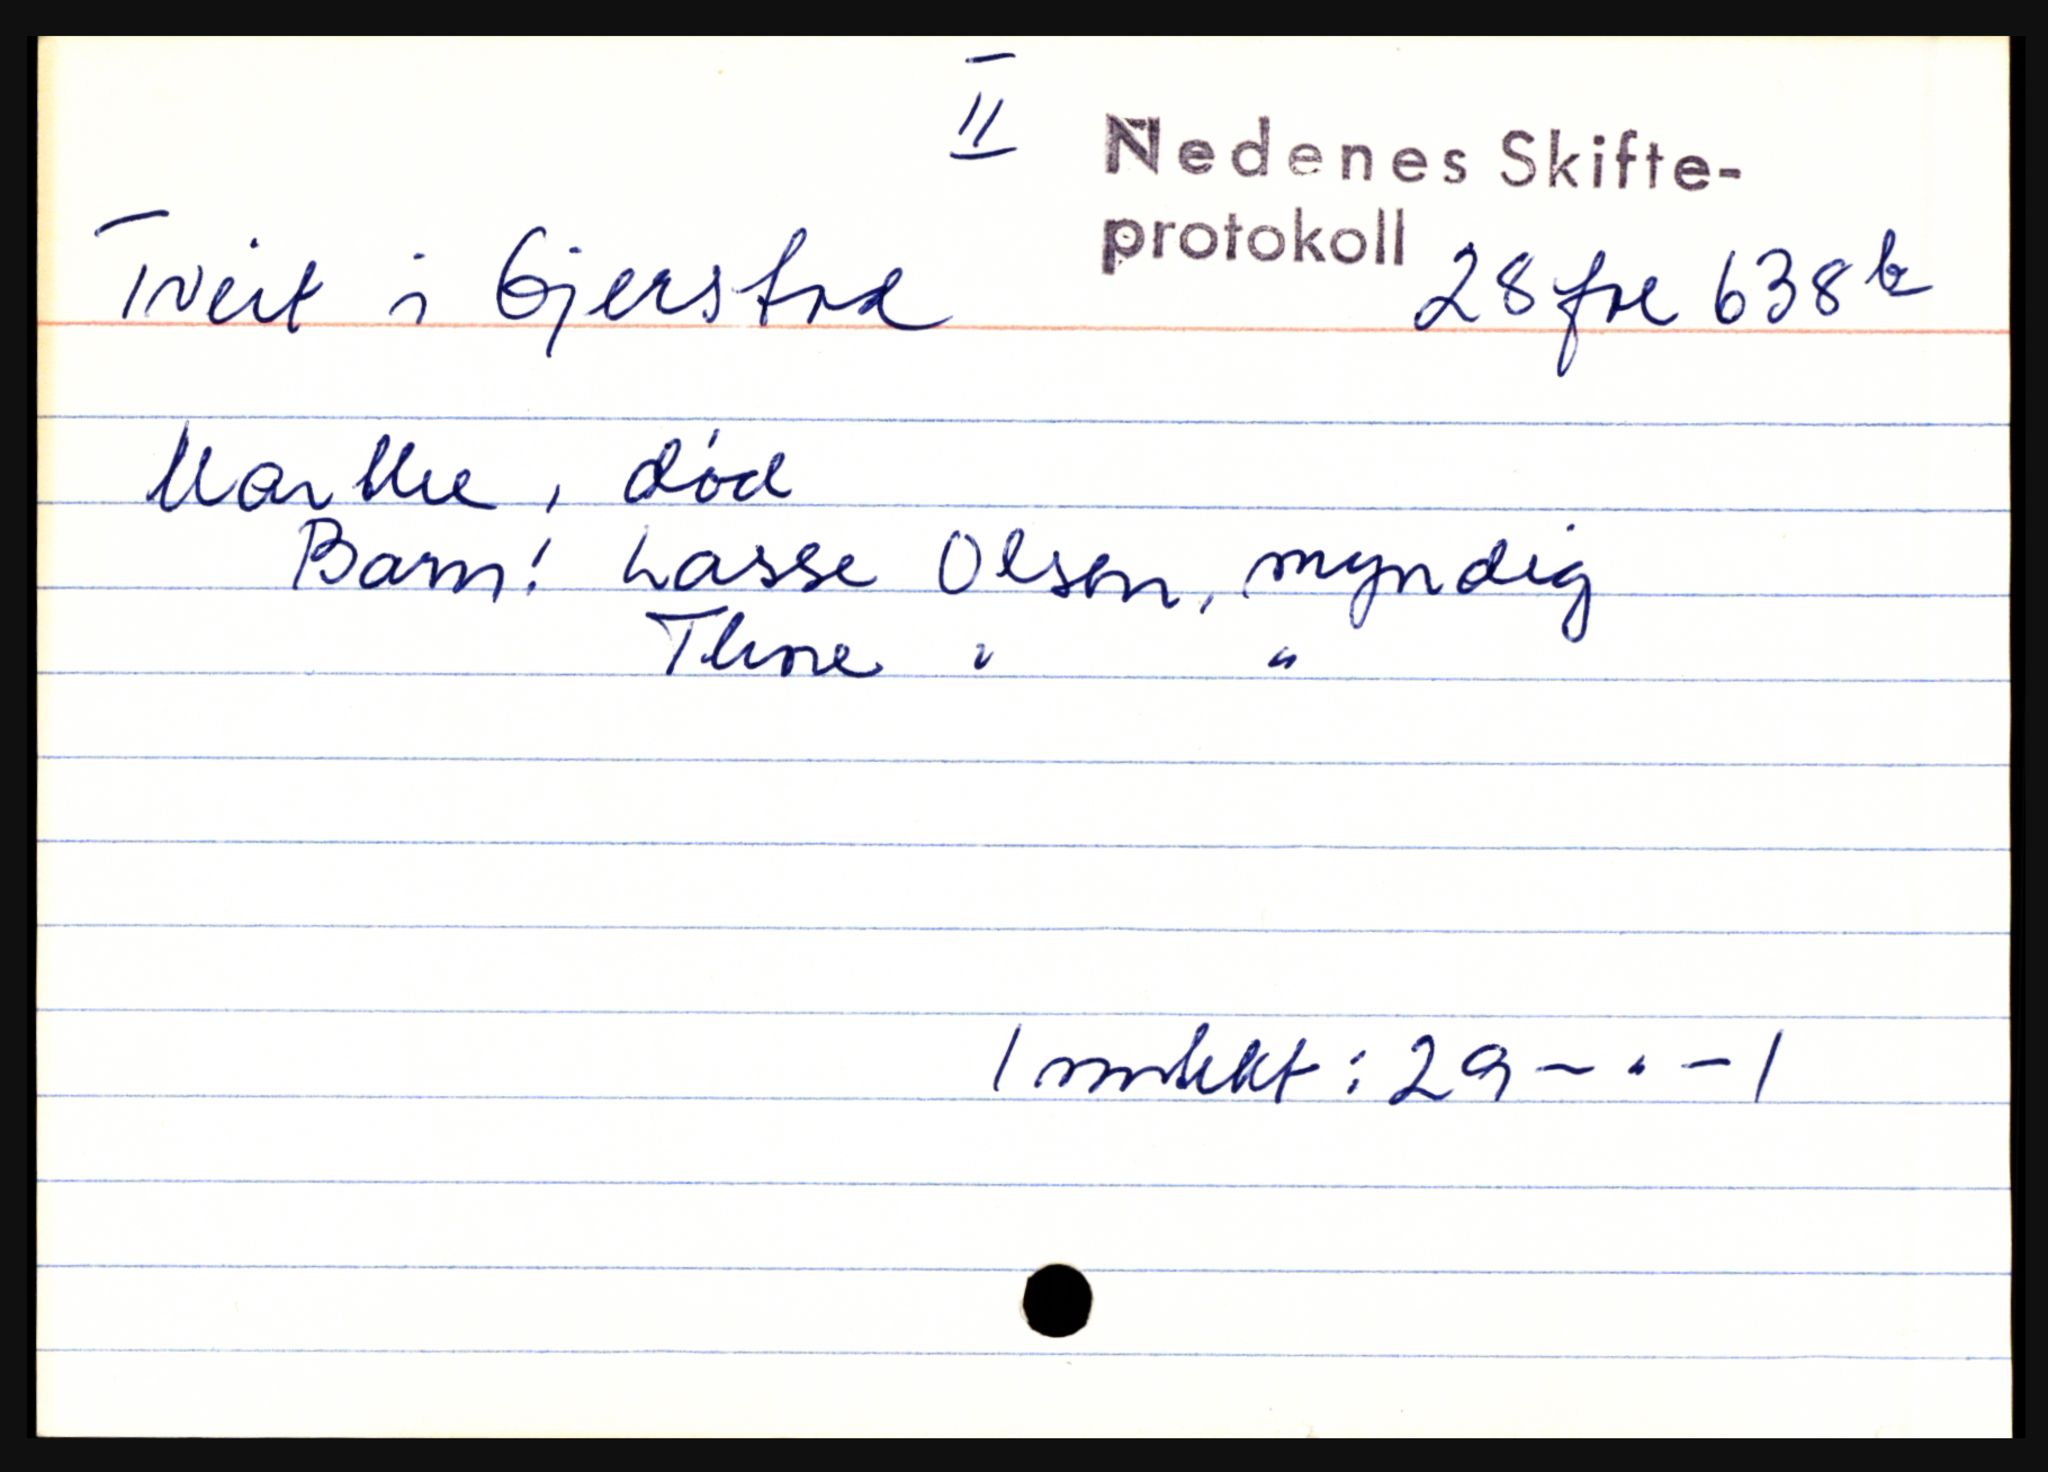 II
Nedenes Skifte-
protokoll
Tveit i Gjerstad 28 fol 638b
Marthe, død
Barn: Lasse Olsen, myndig
Thore " "
Inntekt: 29 - " - 1